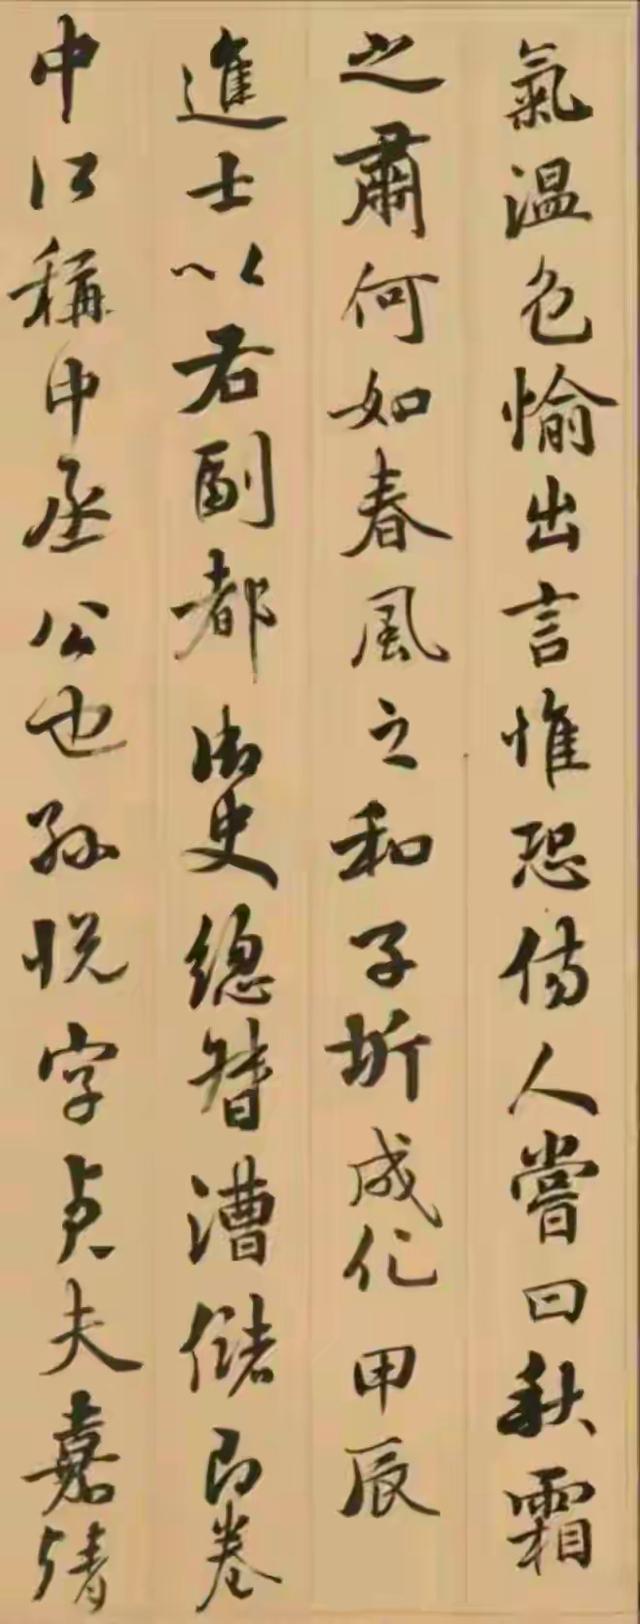 氣溫色愉出言惟恐傷人嘗曰秋霜
之肅何如春風之和子圻成化甲辰
進士以右副都御史總督漕儲即卷
中所稱中丞公也孫悅字貞夫嘉靖